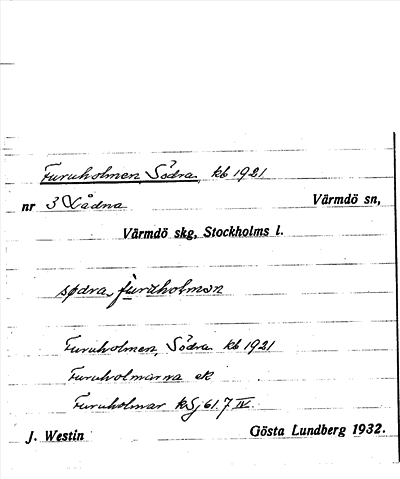 Furuholmen, Södra, kb 1921
nr 3 Lådna Värmdö sn,
Värmdö skg, Stockholms l.
sødra, furuholmən
Furuholmen, Södra kb 1921
Furuholmarna ek
Furuholmar kSj 61.7 IV.
J. Westin Gösta Lundberg 1932.